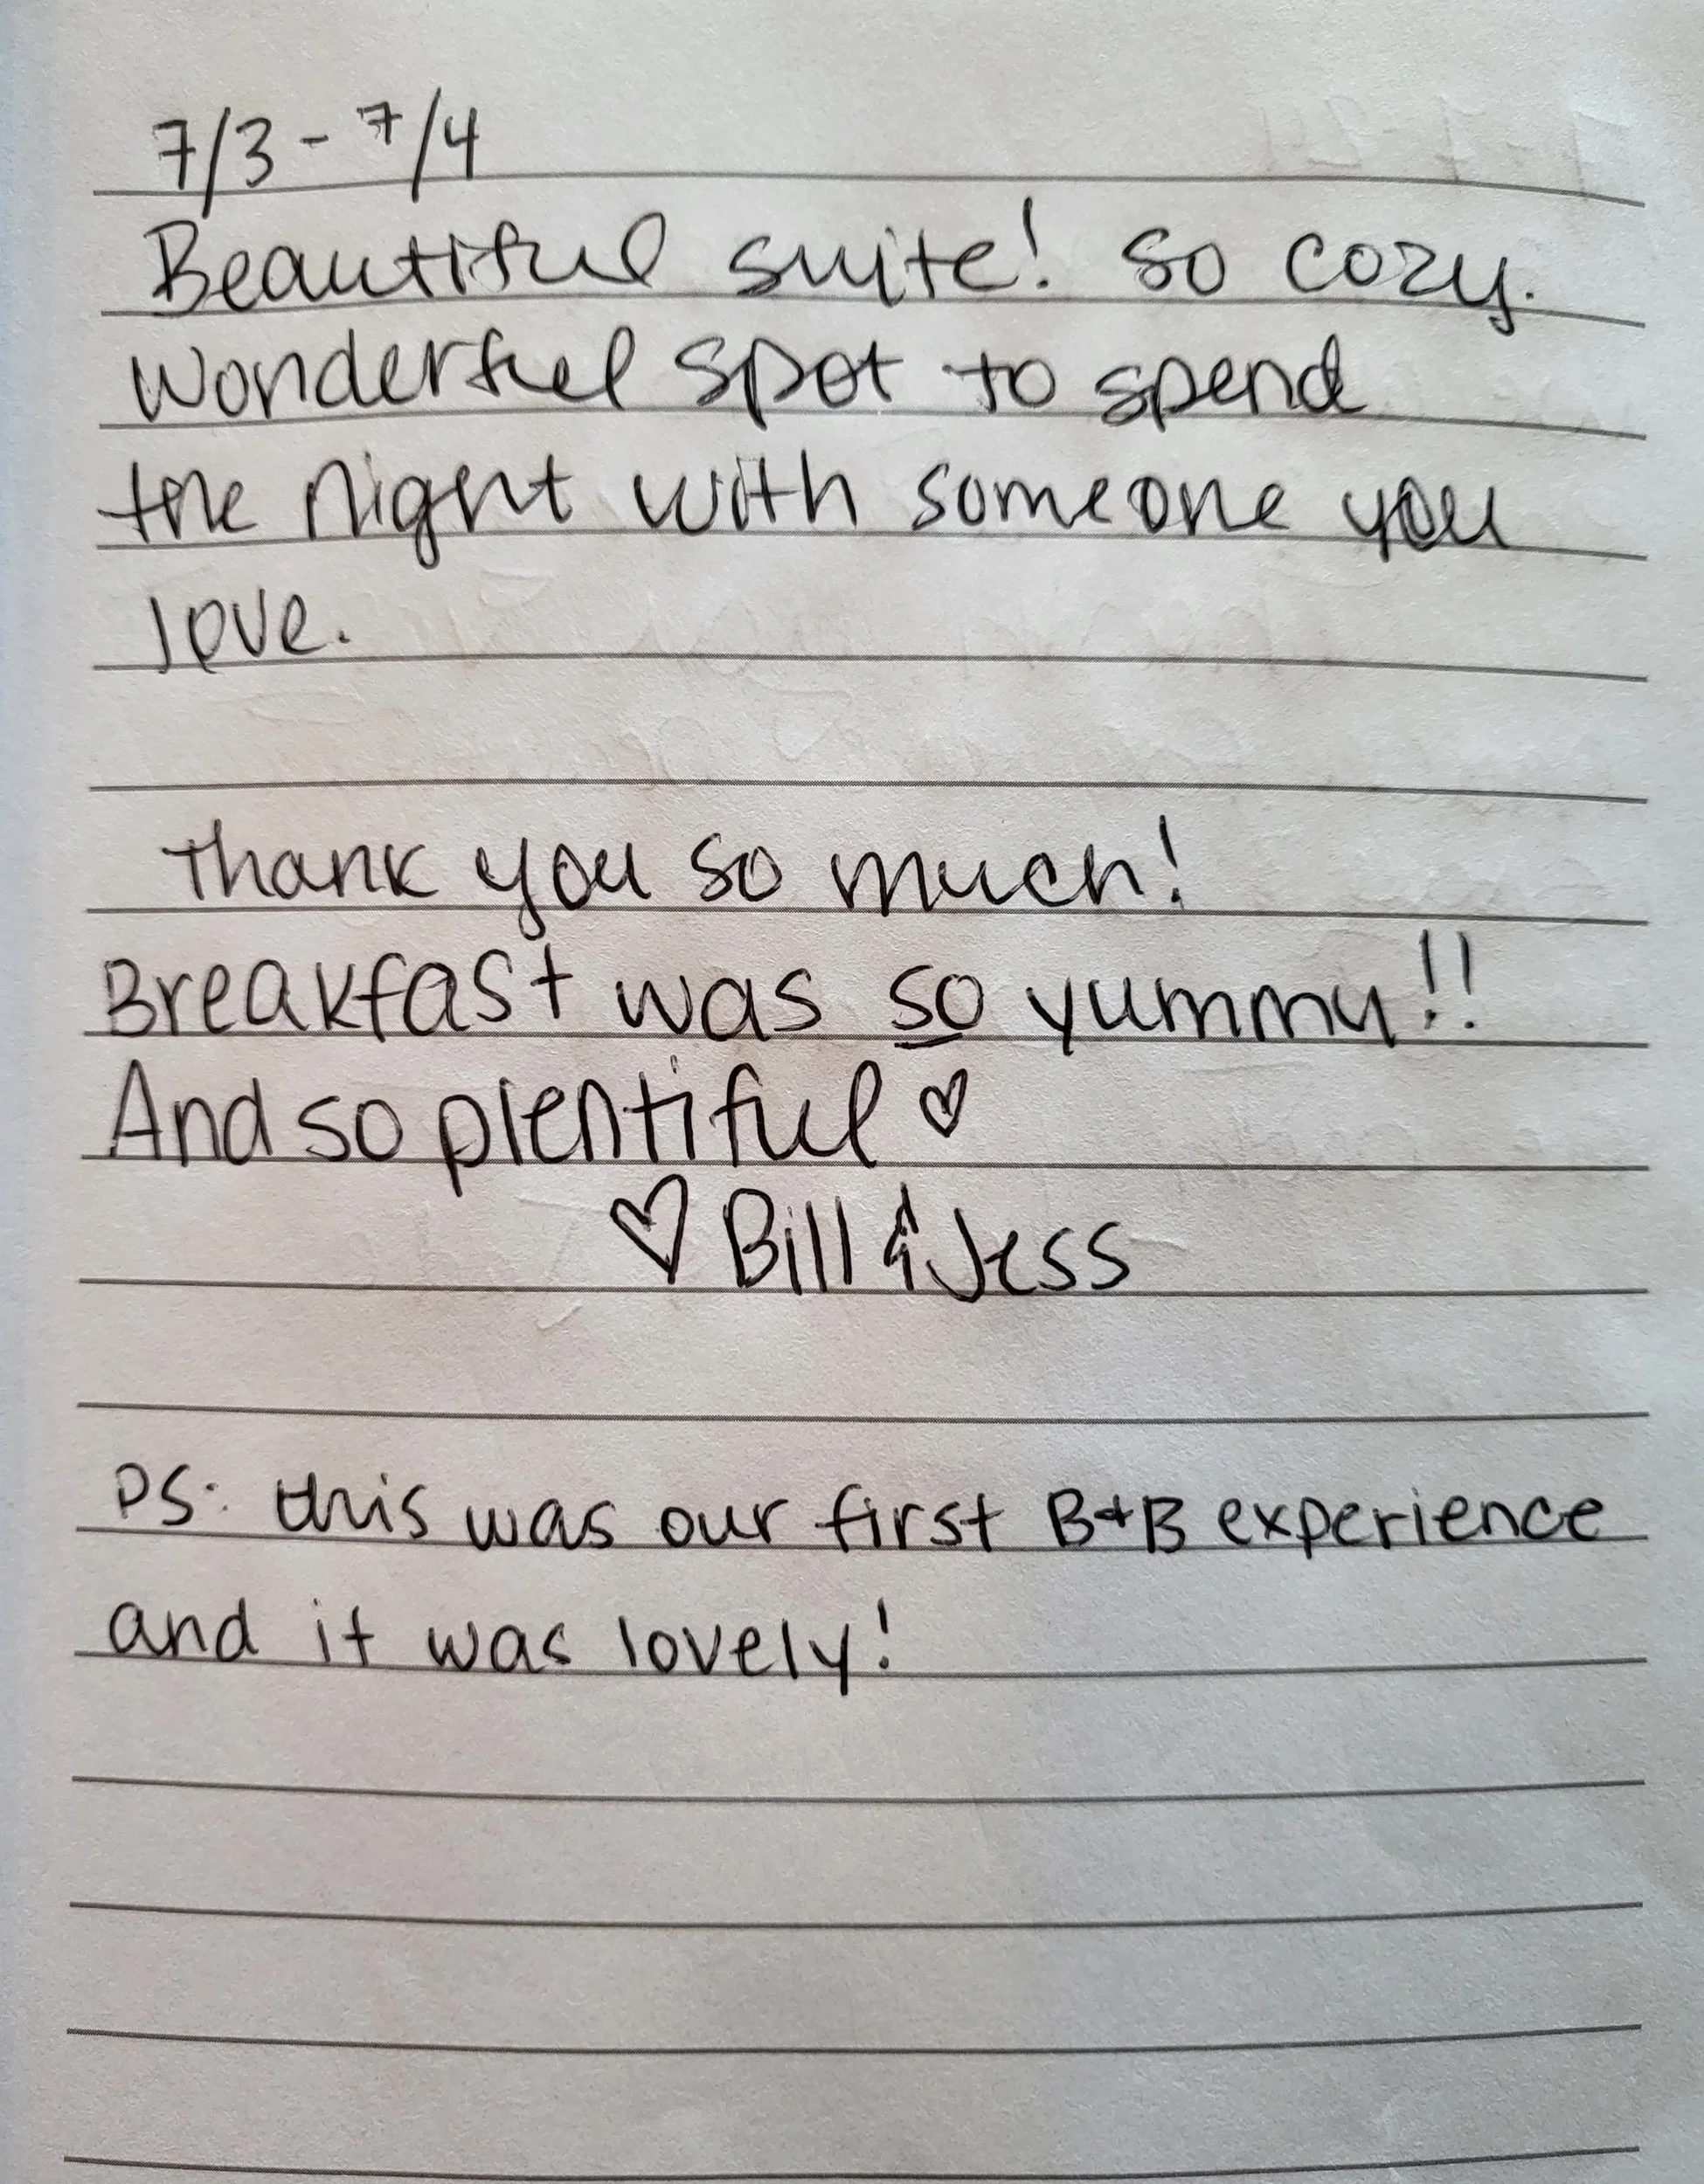 7/3 - 7/4
Beautiful suite! So cozy.
Wonderful spot to spend
the night with someone you
love.
Thank you so much!
Breakfast was so yummy!!
And so plentiful ♡
♡ Bill & Jess
PS: this was our first B+B experience
and it was lovely!